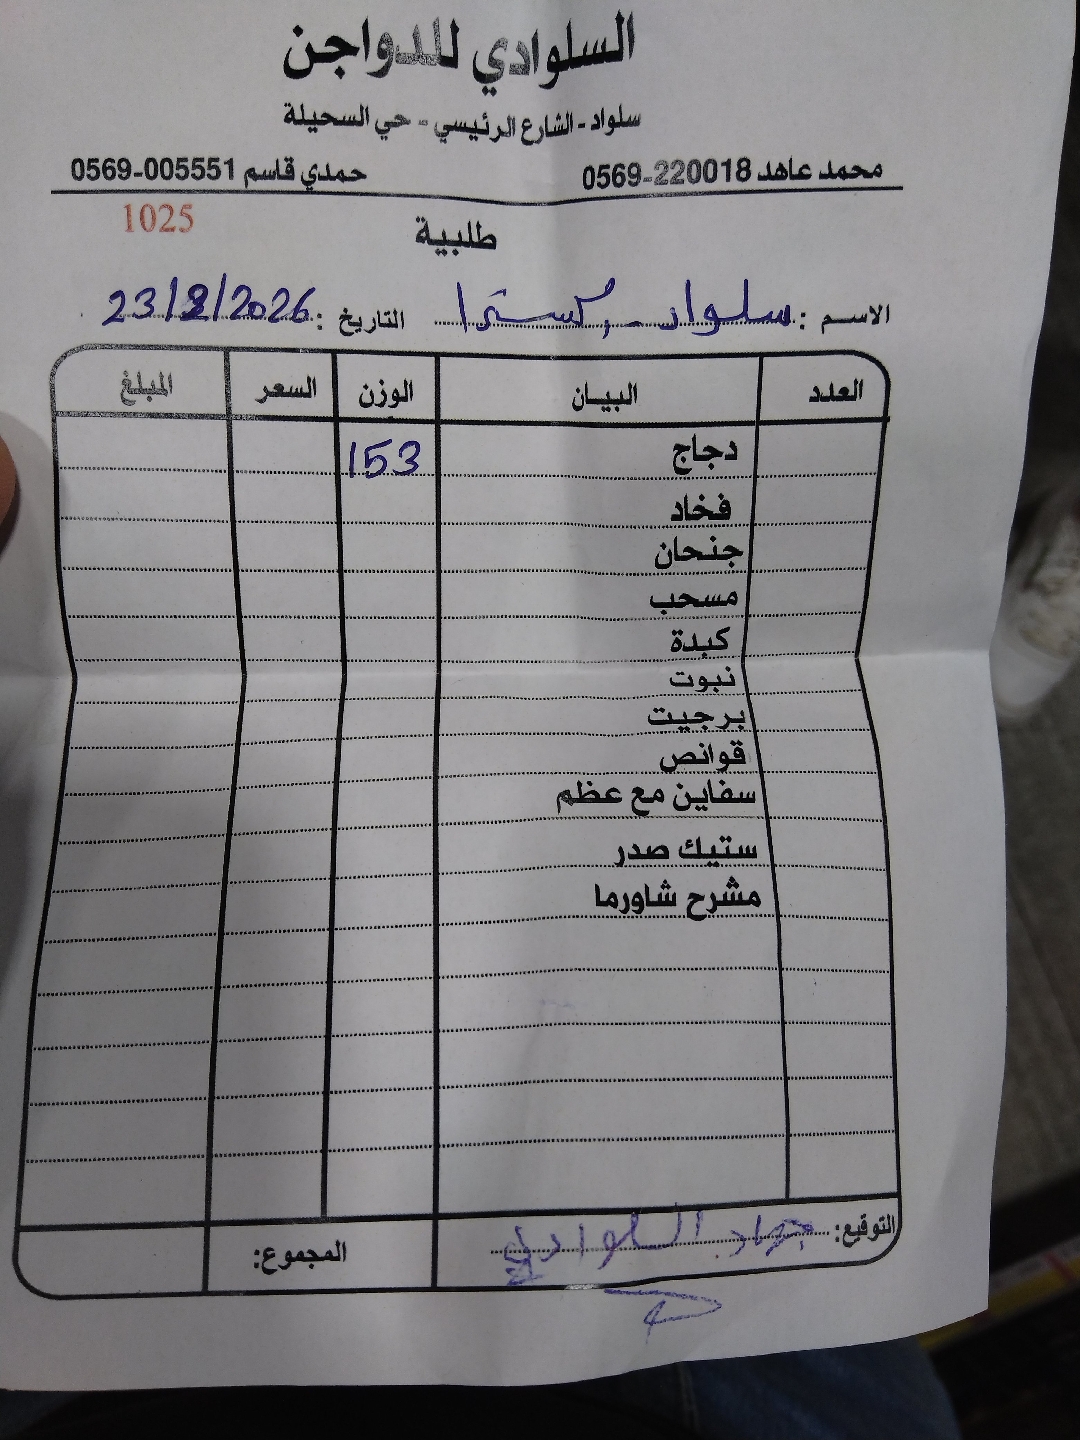 السلوادي للدواجن
سلواد - الشارع الرئيسي - حي السحيلة
محمد عاهد 0569-220018 حمدي قاسم 0569-005551
1025
طلبية
الاسم : سلواد - إكسترا التاريخ : 23/2/2026
العدد البيان الوزن السعر المبلغ
دجاج 153
فخاد
جنحان
مسحب
كبدة
نبوت
برجيت
قوانص
سفاين مع عظم
ستيك صدر
مشرح شاورما
التوقيع: جهاد السلوادي المجموع: